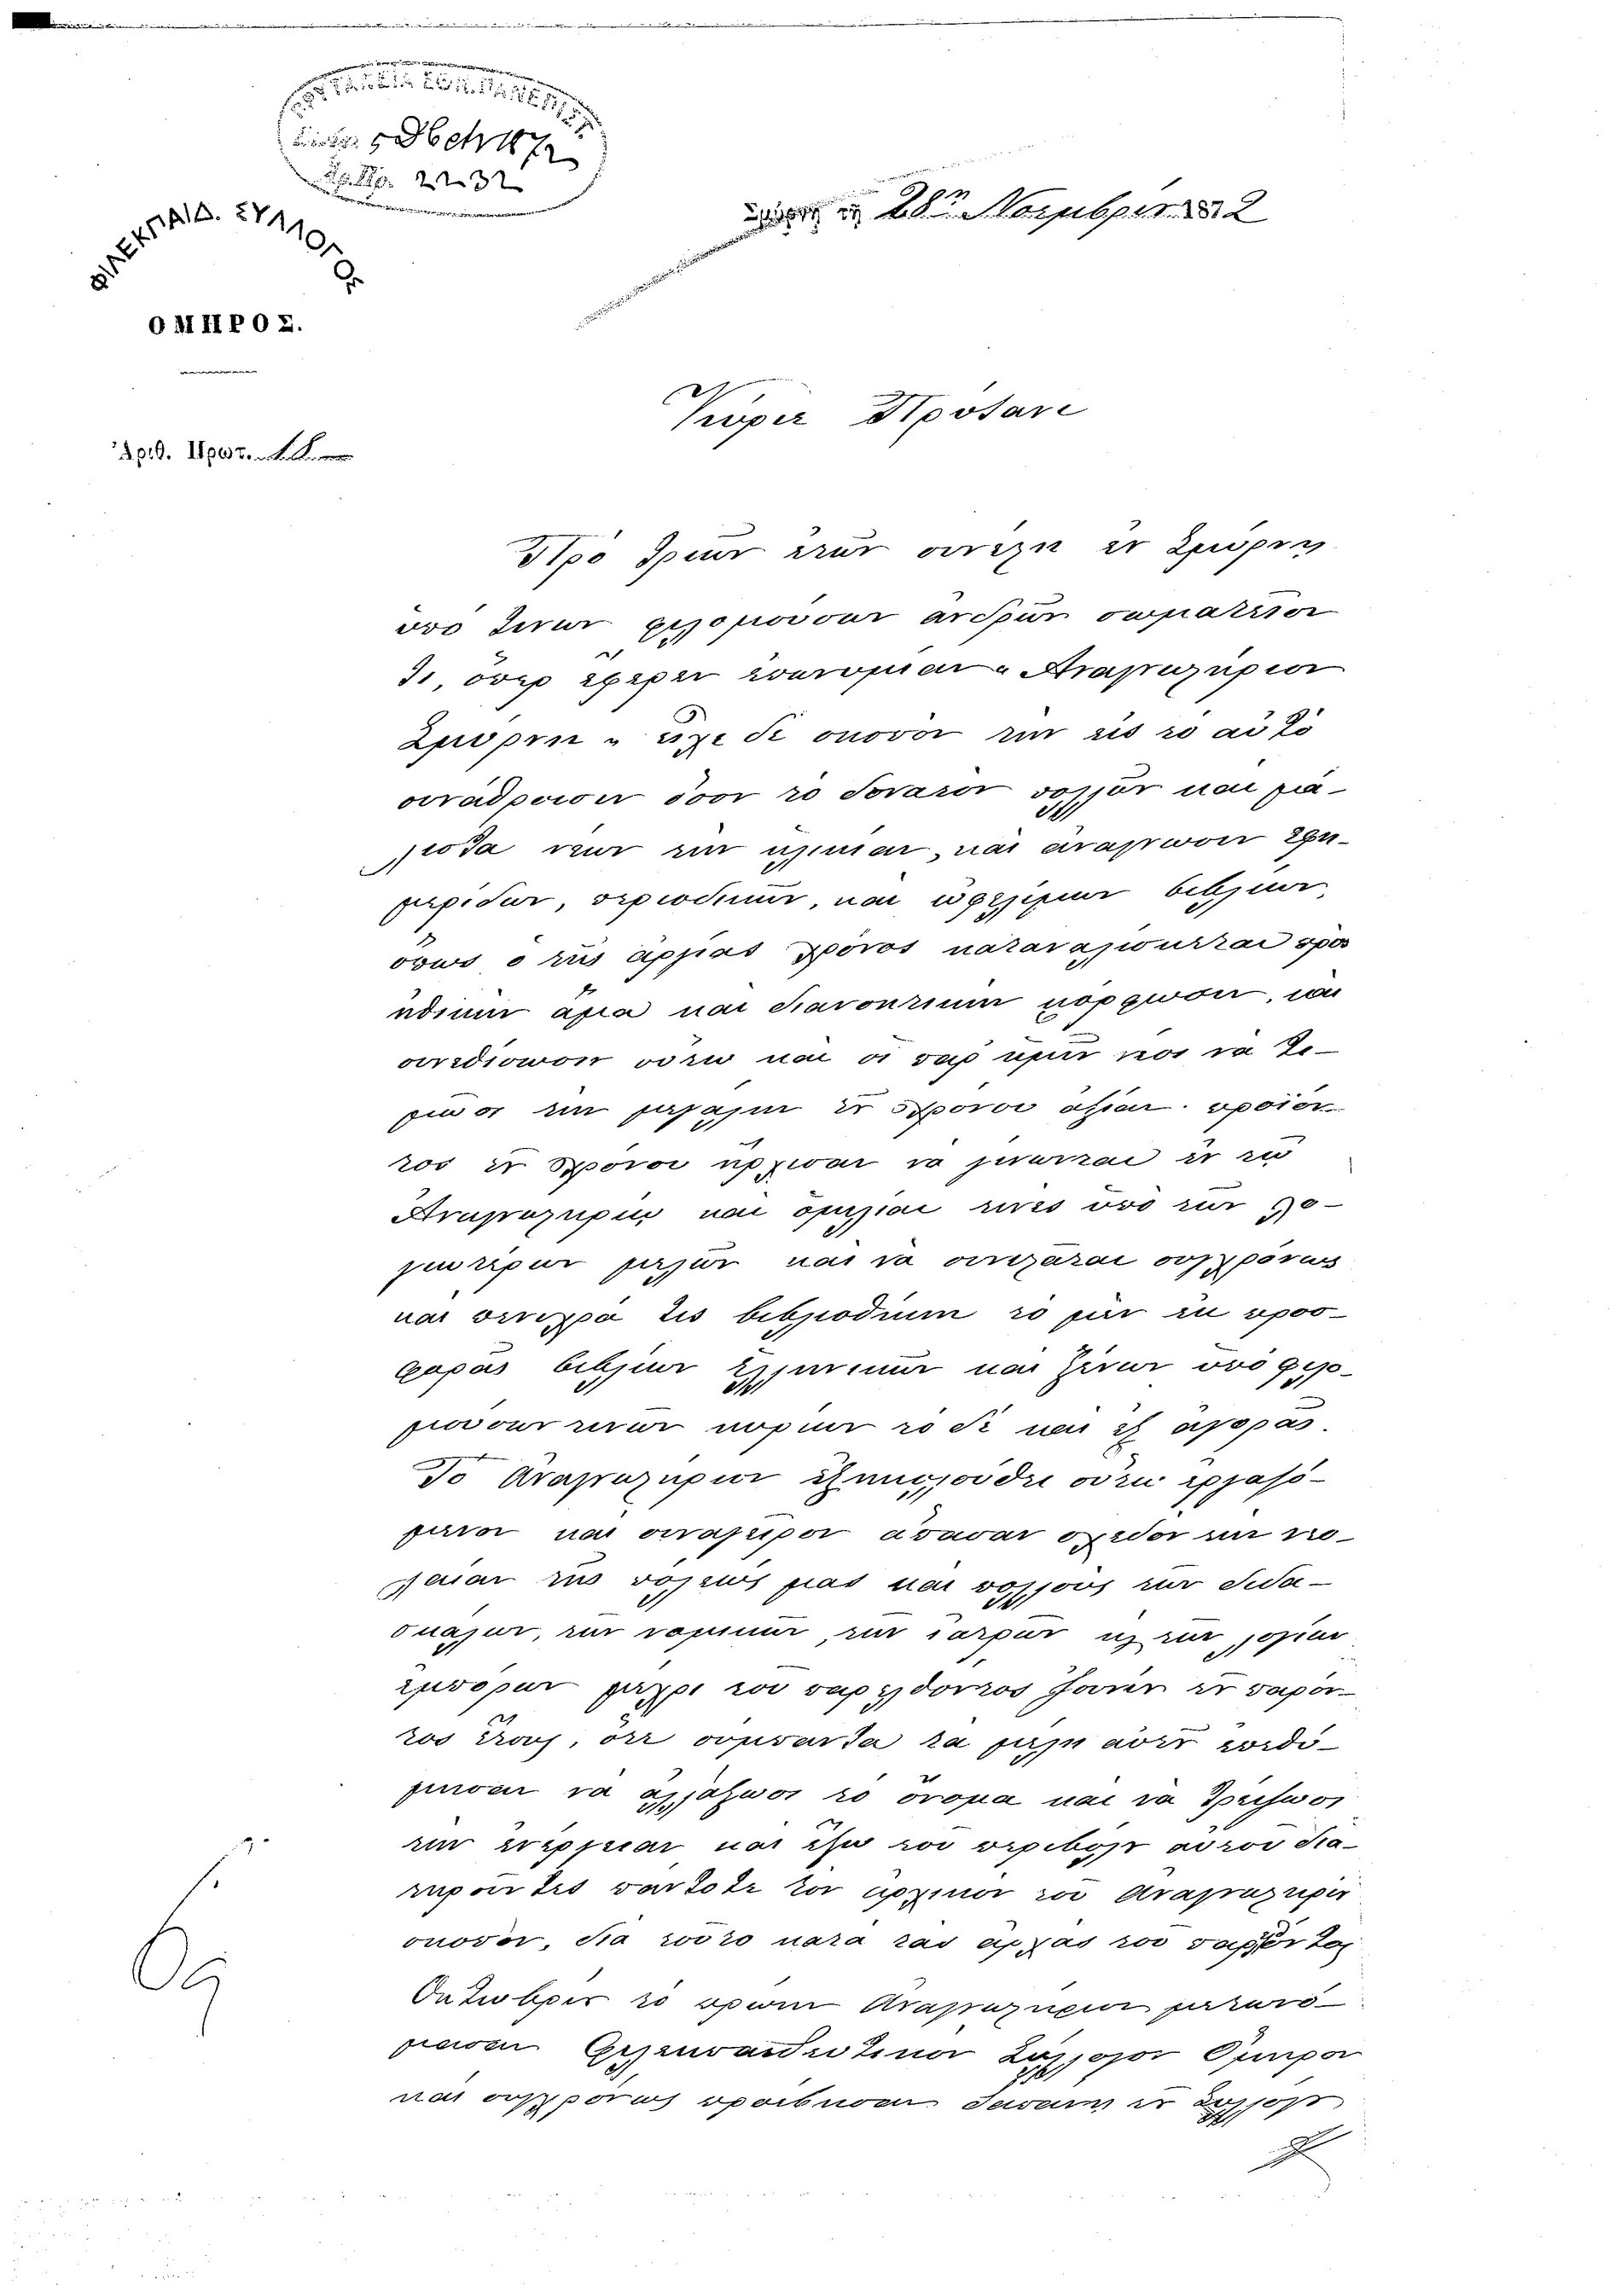 5 Δεκ 1872
2232
ΦΙΛΕΚΠΑΙΔ. ΣΥΛΛΟΓΟΣ
ΟΜΗΡΟΣ.
28ῃ Νοεμβρίου 1872
Ἀριθ. Πρωτ. 18
Κύριε Πρόεδρε
Πρὸ τριῶν ἐτῶν συνέστη ἐν Σμύρνῃ
ὑπό τινων φιλομούσων ἀνδρῶν σωματεῖόν
τι, ὅπερ ἔφερεν ἐπωνυμίαν „Ἀναγνωστήριον
Σμύρνη„ εἶχε δὲ σκοπὸν τὴν εἰς τὸ αὐτὸ
συνάθροισιν ὅσον τὸ δυνατὸν πολλῶν καὶ μά-
λιστα νέων τὴν ἡλικίαν, καὶ ἀνάγνωσιν ἐφη-
μερίδων, περιοδικῶν, καὶ ὠφελίμων βιβλίων,
ὅπως ὁ τῆς ἀργίας χρόνος καταναλίσκηται πρὸς
ἠθικὴν ἅμα καὶ διανοητικὴν μόρφωσιν, καὶ
συνεθίσωσιν οὕτω καὶ οἱ παρ' ἡμῖν νέοι νὰ τι-
μῶσι τὴν μεγάλην τοῦ χρόνου ἀξίαν. προϊόν-
τος τοῦ χρόνου ἤρχισαν νὰ γίνωνται ἐν τῷ
Ἀναγνωστηρίῳ καὶ ὁμιλίαι τινὲς ὑπὸ τῶν λο-
γιωτέρων μελῶν καὶ νὰ συνιστᾶται συγχρόνως
καὶ μικρά τις βιβλιοθήκη τὸ μὲν ἐκ προσ-
φορᾶς βιβλίων ἑλληνικῶν καὶ ξένων ὑπὸ φιλο-
μούσων τινῶν κυρίων τὸ δὲ καὶ ἐξ ἀγορᾶς.
Τὸ Ἀναγνωστήριον ἐξηκολούθει οὕτω ἐργαζό-
μενον καὶ συναγεῖρον ἅπασαν σχεδὸν τὴν νεο-
λαίαν τῆς πόλεώς μας καὶ πολλοὺς τῶν διδα-
σκάλων, τῶν νομικῶν, τῶν ἰατρῶν κ τῶν λογίων
ἐμπόρων μέχρι τοῦ παρελθόντος Ἰουνίου τοῦ παρόν-
τος ἔτους, ὅτε σύμπαντα τὰ μέλη αὐτοῦ ἐπεθύ-
μησαν νὰ ἀλλάξωσι τὸ ὄνομα καὶ νὰ ἐκτείνωσι
τὴν ἐνέργειαν καὶ ἔξω τοῦ περιβόλου αὐτοῦ δια-
τηροῦντες πάντοτε τὸν ἀρχικὸν τοῦ Ἀναγνωστηρίου
σκοπόν, διὰ τοῦτο κατὰ τὰς ἀρχὰς τοῦ παρελθόντος
Ὀκτωβρίου τὸ πρώην Ἀναγνωστήριον μετωνό-
μασαν Φιλεκπαιδευτικὸν Σύλλογον Ὅμηρον
καὶ συγχρόνως προέβησαν δαπάναις τοῦ Συλλόγου